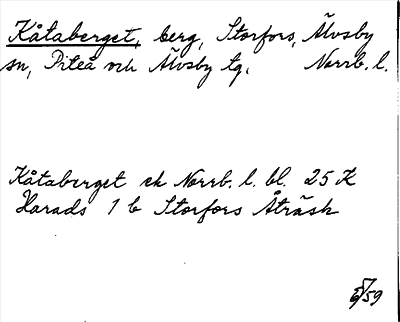 Kåtaberget, berg, Storfors, Älvsby
sn, Piteå och Älvsby tg. Norrb. l.
Kåtaberget ek Norrb. l. bl. 25 K
Harads 1 b Storfors Åträsk
5/6 59